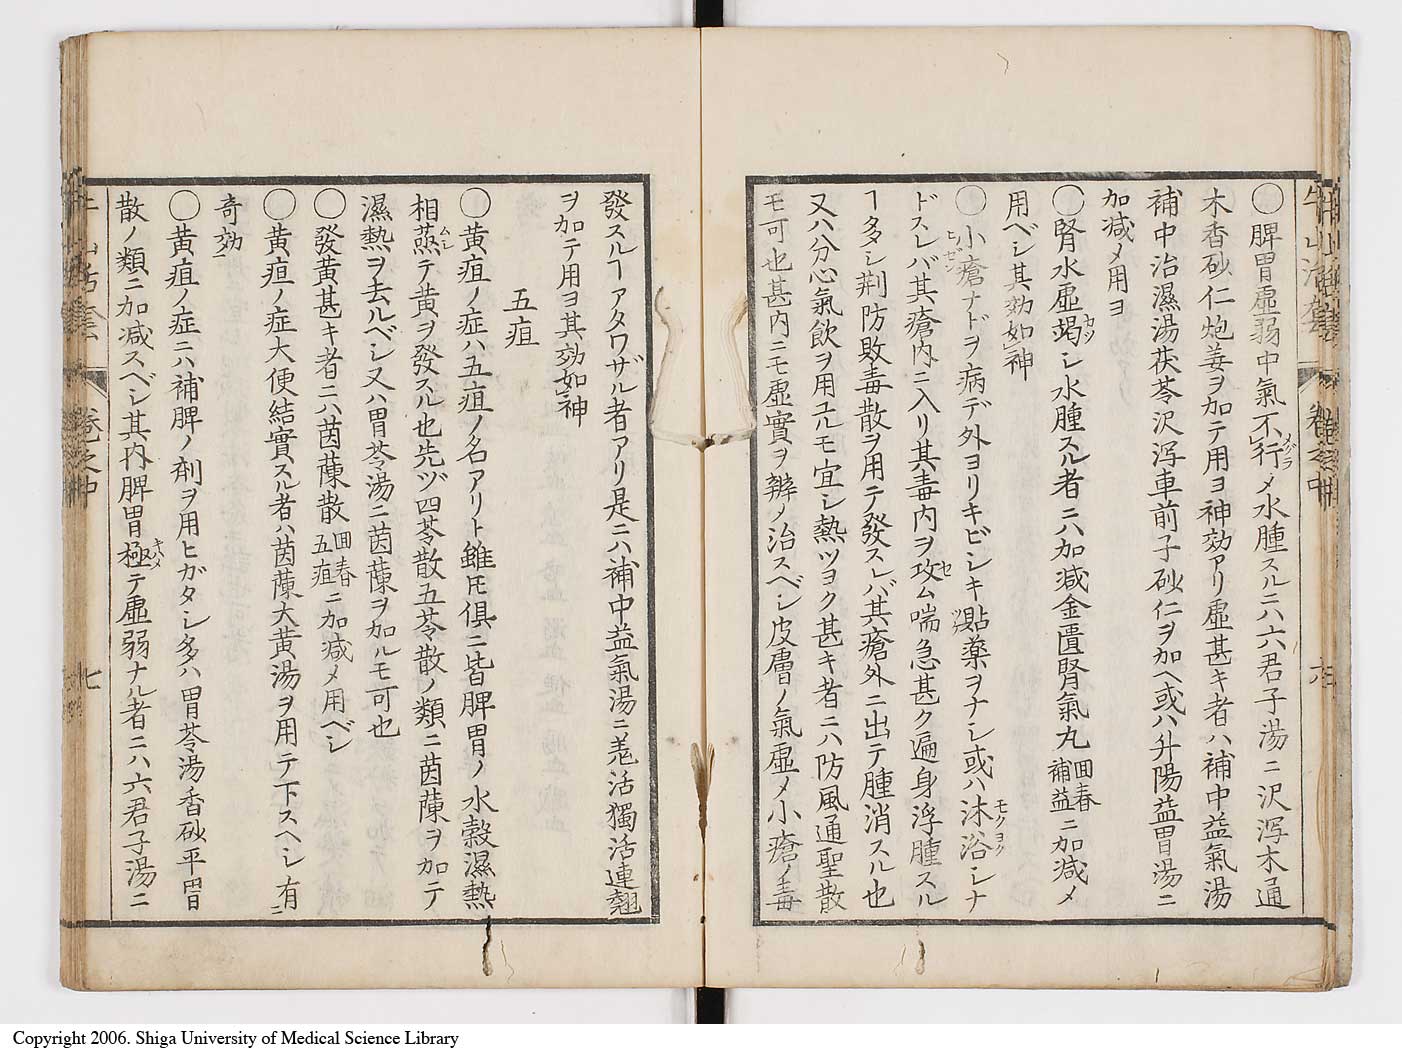 牛山活套 卷之中 六
〇脾胃虚弱中氣不行メ水腫スルニハ六君子湯ニ沢瀉木通
木香砂仁炮姜ヲ加テ用ヨ神効アリ虚甚キ者ハ補中益氣湯
補中治濕湯茯苓沢瀉車前子砂仁ヲ加ヘ或ハ升陽益胃湯ニ
加减メ用ヨ
〇腎水虚竭シ水腫スル者ニハ加减金匱腎氣丸回春補益ニ加减メ
用ベシ其効如神
〇小瘡ナドヲ病デ外ヨリキビシキ貼薬ヲナシ或ハ沐浴シナ
ドスレバ其瘡内ニ入リ其毒内ヲ攻ム喘急甚ク遍身浮腫スル
ヿ多シ荆防敗毒散ヲ用テ發スレバ其瘡外ニ出テ腫消スル也
又ハ分心氣飲ヲ用ユルモ宜シ熱ツヨク甚キ者ニハ防風通聖散
モ可也甚内ニモ虚實ヲ辨メ治スベシ皮膚ノ氣虚メ小瘡ノ毒
發スルヿアタワザル者アリ是ニハ補中益氣湯ニ羌活獨活連翹
ヲ加テ用ヨ其効如神
五疸
〇黄疸ノ症ハ五疸ノ名アリト雖モ俱ニ皆脾胃ノ水穀濕熱
相蒸テ黄ヲ發スル也先ヅ四苓散五苓散ノ類ニ茵蔯ヲ加テ
濕熱ヲ去ルベシ又ハ胃苓湯ニ茵蔯ヲ加ルモ可也
〇發黄甚キ者ニハ茵蔯散回春五疸ニ加减メ用ベシ
〇黄疸ノ症大便結實スル者ハ茵蔯大黄湯ヲ用テ下スヘシ有
奇効
〇黄疸ノ症ニハ補脾ノ剤ヲ用ヒガタシ多ハ胃苓湯香砂平胃
散ノ類ニ加减スベシ其内脾胃極テ虚弱ナル者ニハ六君子湯ニ
牛山活套 卷之中 七
Copyright 2006. Shiga University of Medical Science Library